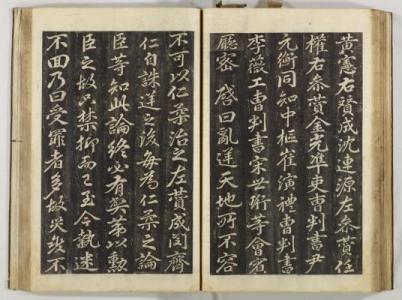 黃憲右贊成沈連源左參贊任
權右參贊金光準吏曹判書尹
元衡同知中樞崔演禮曹判書
李薇工曹判書宋世珩等會賓
廳密啓曰亂逆天地所不容
不可以仁柔治之左贊成閔齊
仁自誅逆之後每爲仁柔之論
臣等知此論終必有弊第以勳
臣之故只禁抑而已至今執迷
不回乃曰受罪者多故災變不